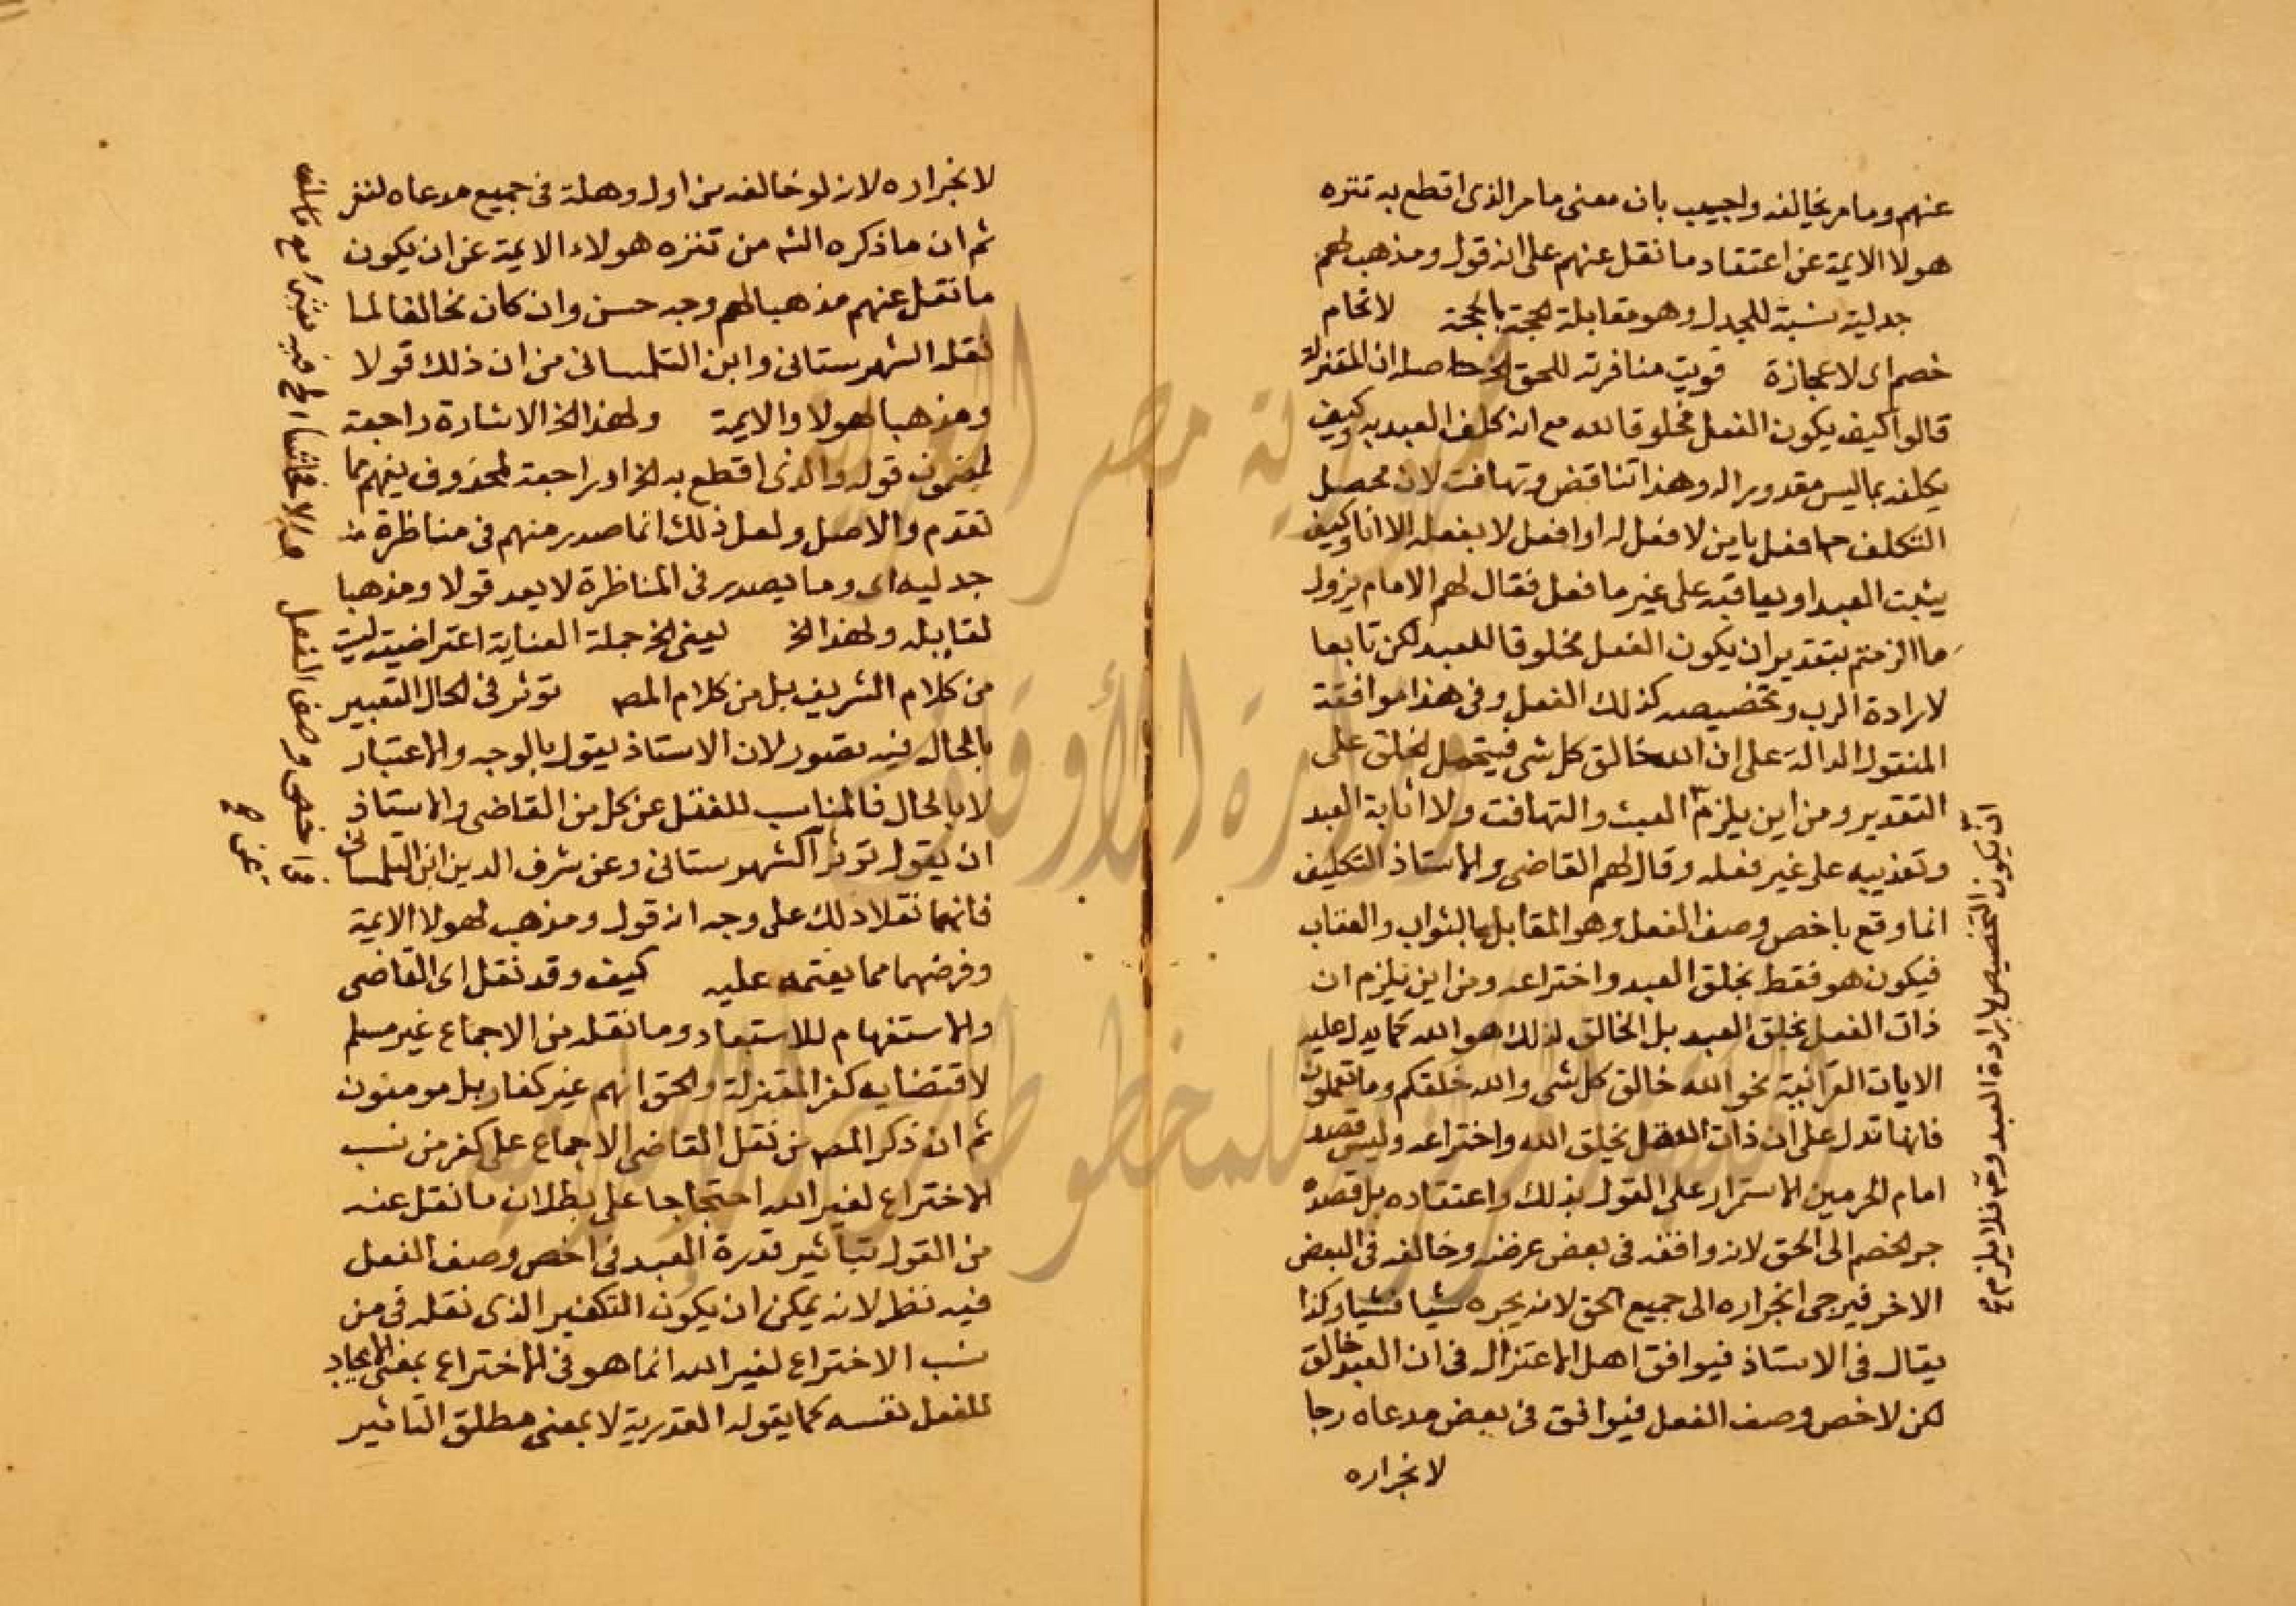 عنهم ومامر يخالفه واجيب بان معنى مامر الذى اقطع به تنزه
هولا الايمة عن اعتقاد ما نقل عنهم على انه قول ومذهب لهم
جدلية نسبة للجدل وهو مقابلة الحجة بالحجة لافحام
خصم اى لاعجازه قويت منافرته للحق الخ حاصله ان المعتزلة
قالوا كيف يكون الفعل مخلوقا لله مع انه كلف العبد به وكيف
يكلفه بما ليس مقدورا له وهذا تناقض وتهافت لان محصل
التكلف ح افعل يا من لا فعل له او افعل لا يفعله الا انا وكيف
يثبت العبد او يعاقبه على غير ما فعل فقال لهم الامام يزول
ما الزمتم بتقدير ان يكون الفعل مخلوقا للعبد لكن تابعا
لارادة الرب وتخصيصه كذلك الفعل وفى هذا موافقة
المنقول الدالة على ان الله خالق كل شى فيتحمل الخلق على
التقدير ومن اين يلزم العبث والتهافت ولا اثابة العبد
وتعذيبه على غير فعله وقال لهم القاضى والاستاذ التكليف
انما وقع باخص وصف الفعل وهو المقابل بالثواب والعقاب
فيكون هو فقط بخلق العبد واختراعه ومن اين يلزم ان
ذات الفعل بخلق العبد بل الخالق لذلك هو الله كما يدل عليه
الايات القرآنية نحو الله خالق كل شى والله خلقكم وما تعملون
فانها تدل على ان ذات الفعل بخلق الله واختراعه وليس قصد
امام الحرمين الاستمرار على القول بذلك واعتقاده بل قصده
جر الخصم الى الحق لانه وافقه فى بعض غرضه وخالفه فى البعض
الاخر فيرجى انجراره الى جميع الحق لانه يجره شيا فشيا وكذا
يقال فى الاستاذ فيوافق اهل الاعتزال فى ان العبد خالق
لكن لاخص وصف الفعل فيوافق فى بعض مدعاه رجا
لانجراره
ان يكون التخصيص بارادة العبد وح فلا يلزم
لانجراره لانه لو خالفه من اول وهلة فى جميع مدعاه لنفر
ثم ان ما ذكره الشه من تنزه هولاء الايمة عن ان يكون
ما نقل عنهم مذهبا لهم وجه حسن وان كان مخالفا لما
نقله الشهرستانى وابن التلمسانى من ان ذلك قولا
ومذهبا لهولاء الايمة ولهذا الخ الاشارة راجعة
لمضمون قوله والذى اقطع به الخ او راجعة لمحذوف يفهم مما
تقدم والاصل ولعل ذلك انما صدر منهم فى مناظرة
جدليه اى وما يصدر فى المناظرة لا يعد قولا ومذهبا
لقايله ولهذا الخ يعنى الخ جملة العناية اعتراضية ليست
من كلام الشريف بل من كلام المص توثر فى الحال التعبير
بالحال فيه قصور لان الاستاذ يقول بالوجه والاعتبار
لا بالحال فالمناسب للنقل عن كل من القاضى والاستاذ
ان يقول توثر آ الشهرستانى وعن شرف الدين ابن التلمسانى
فانهما نقلا ذلك على وجه انه قول ومذهب لهولا الايمة
وغرضهما مما يعتمد عليه كيف وقد نقل اى القاضى
والاستفهام للاستبعاد وما نقله من الاجماع غير مسلم
لاقتضايه كفر المعتزلة والحق انهم غير كفار بل مومنون
ثم ان ذكر المص من نقل القاضى الاجماع على كفر من نسب
الاختراع لغير الله احتجاجا على بطلان ما نقل عنه
من القول بتاثير قدرة العبد فى اخص وصف الفعل
فيه نظر لانه يمكن ان يكون التكفير الذى نقله فى من
نسب الاختراع لغير الله انما هو فى الاختراع بمعنى الايجاد
للفعل نفسه كما يقوله القدرية لا بمعنى مطلق التاثير
فى اخص وصف الفعل